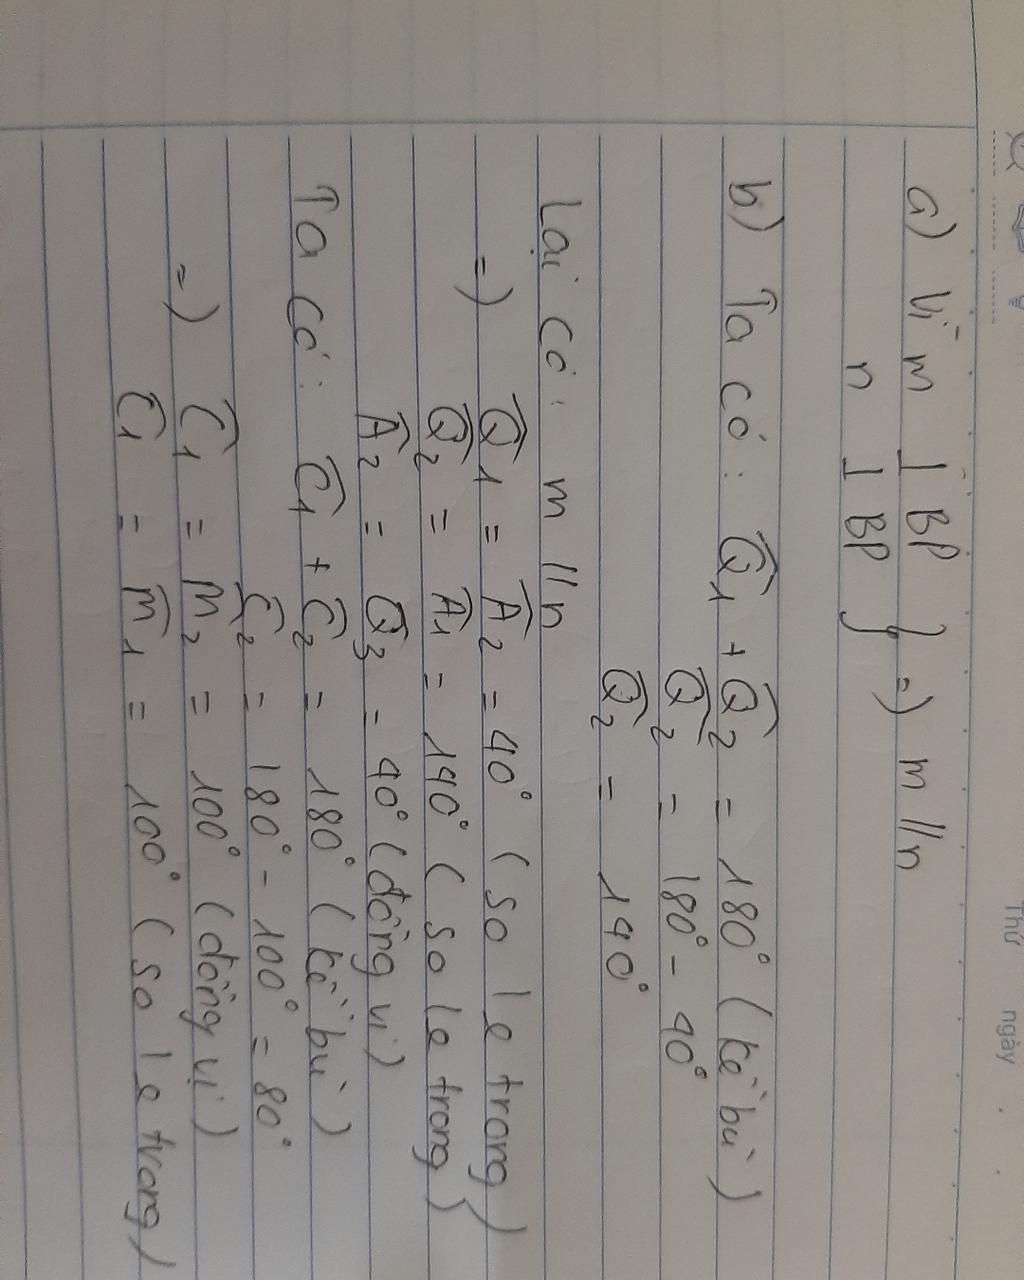 Thứ ngày
a) Vì m ⊥ BP
n ⊥ BP } =) m // n
b) Ta có: Q̂1 + Q̂2 = 180° (kề bù)
Q̂2 = 180° - 40°
Q̂2 = 140°
Lại có: m // n
=) Q̂1 = Â2 = 40° (so le trong)
Q̂2 = Â1 = 140° (so le trong)
Â2 = Q̂3 = 40° (đồng vị)
Ta có: Ĉ1 + Ĉ2 = 180° (kề bù)
Ĉ2 = 180° - 100° = 80°
=) Ĉ1 = M̂2 = 100° (đồng vị)
Ĉ1 = m̂1 = 100° (so le trong)